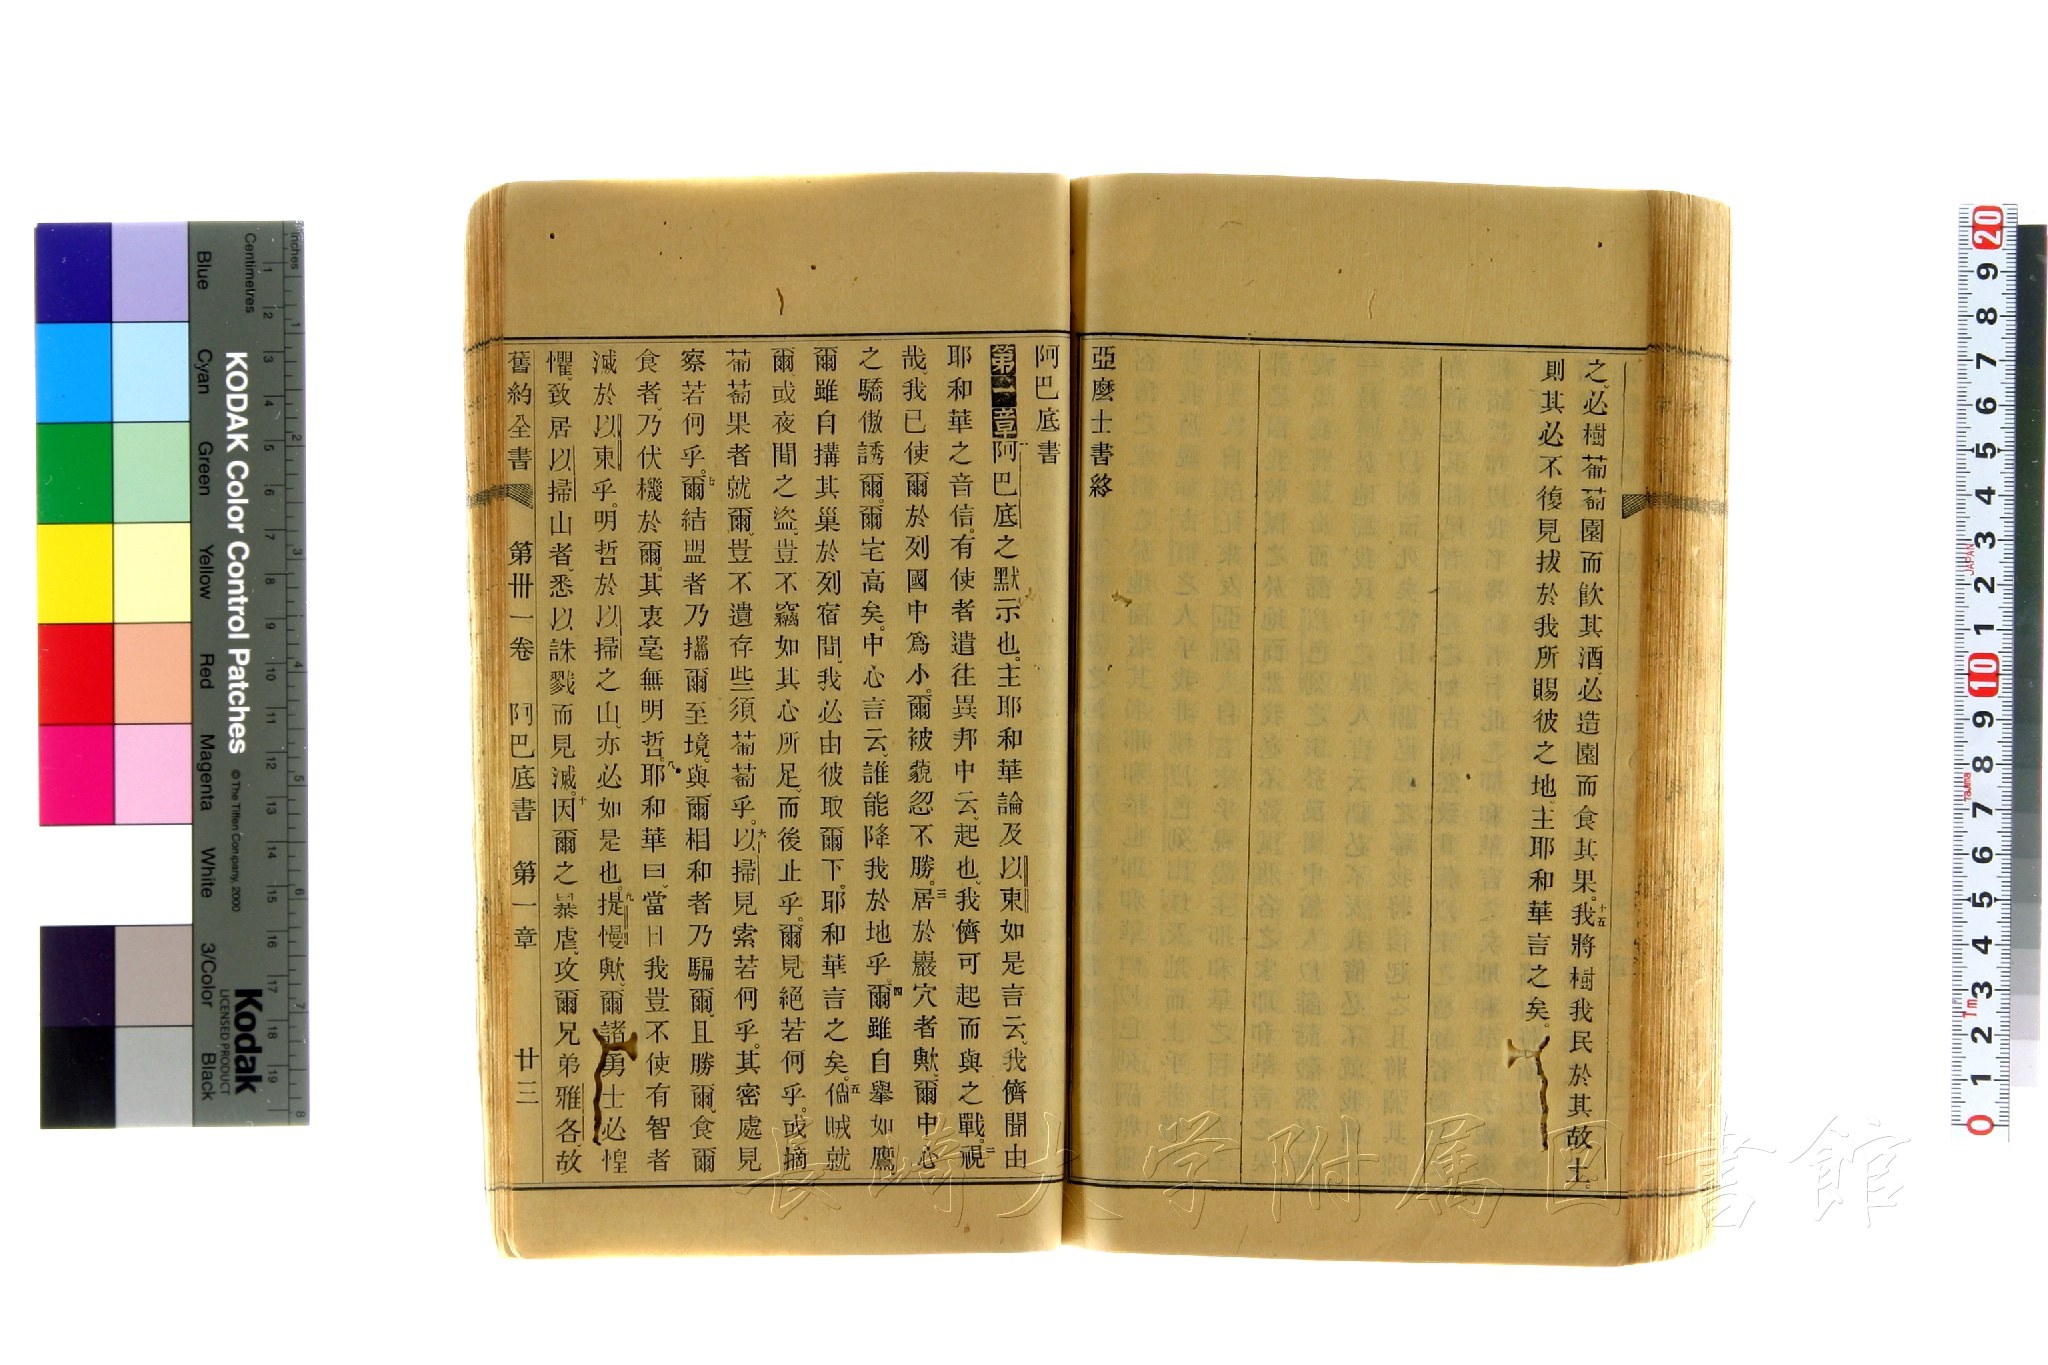 之、必樹葡萄園而飮其酒、必造園而食其果。十五我將樹我民於其故土。
則其必不復見拔於我所賜彼之地、主耶和華言之矣。
亞麼士書終
阿巴底書
第一章阿巴底之默示也。主耶和華論及以東如是言云、我儕聞由
耶和華之音信。有使者遣往異邦中云、起也、我儕可起而與之戰。二視
哉、我已使爾於列國中爲小。爾被藐忽不勝。三居於巖穴者歟、爾中心
之驕傲誘爾。爾宅高矣。中心言云、誰能降我於地乎。四爾雖自擧如鷹、
爾雖自搆其巢於列宿間、我必由彼取爾下、耶和華言之矣。五偷賊就
爾或夜間之盜、豈不竊如其心所足、而後止乎。爾見絕若何乎。或摘
葡萄果者就爾、豈不遺存些須葡萄乎。六以掃見索若何乎。其密處見
察若何乎。七爾結盟者乃攜爾至境。與爾相和者乃騙爾、且勝爾、食爾
食者、乃伏機於爾。其衷毫無明哲。八耶和華曰、當日我豈不使有智者
滅於以東乎。明哲於以掃之山、亦必如是也。九提慢歟、爾諸勇士必惶
懼、致居以掃山者、悉以誅戮而見滅。十因爾之暴虐、攻爾兄弟雅各、故
舊約全書 第卅一卷 阿巴底書 第一章 廿三
長崎大学附属図書館
KODAK Color Control Patches
©The Tiffen Company, 2000
Kodak
LICENSED PRODUCT
Inches
Centimetres
Blue
Cyan
Green
Yellow
Red
Magenta
White
3/Color
Black
JAPAN